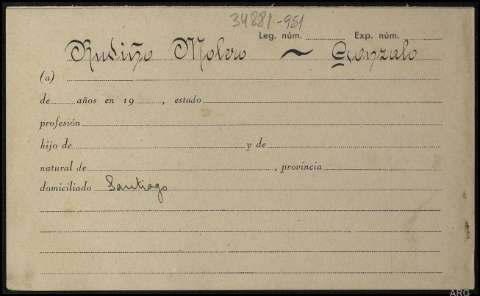 34881-951
Leg. núm. Exp. núm.
Rubiño Molero ~ Gonzalo
(a)
de años en 19 , estado
profesión
hijo de y de
natural de , provincia
domiciliado Santiago
ARG